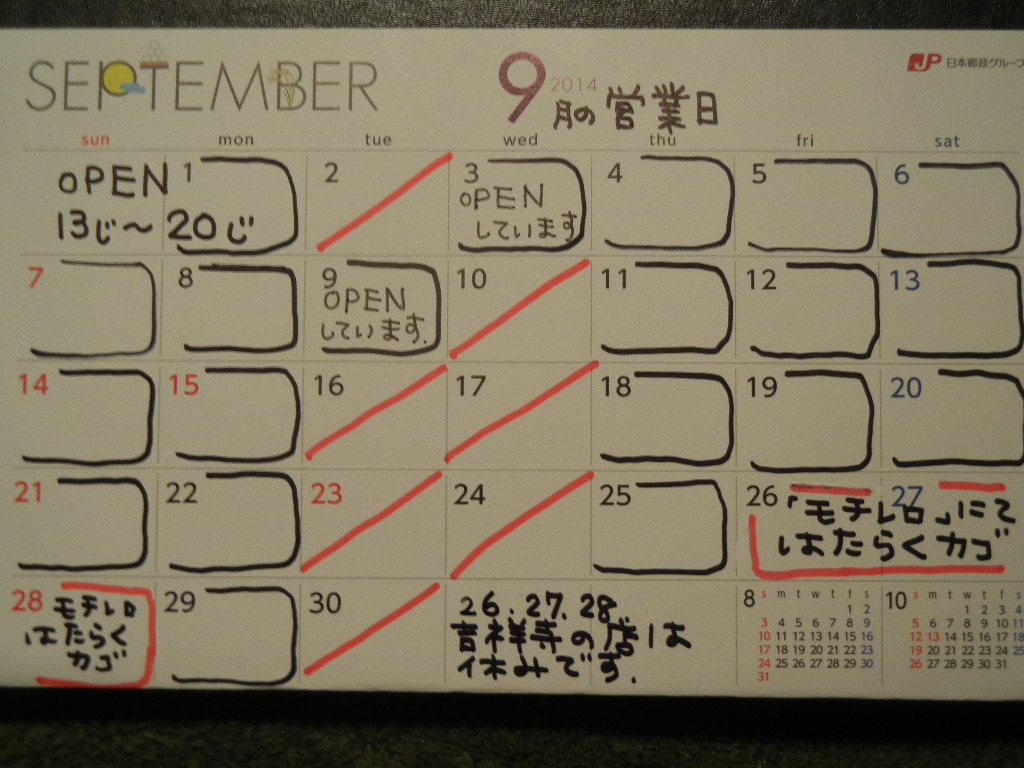 SEPTEMBER
9
2014
月の営業日
JP 日本郵政グループ
sun mon tue wed thu fri sat
OPEN
13じ〜20じ
1 2 3 4 5 6
OPEN
しています
7 8 9 10 11 12 13
OPEN
しています.
14 15 16 17 18 19 20
21 22 23 24 25 26 27
「モチレロ」にて
はたらくカゴ
28 29 30
モチレロ
はたらく
カゴ
26.27.28.
吉祥寺の店は
休みです.
8 s m t w t f s
1 2
3 4 5 6 7 8 9
10 11 12 13 14 15 16
17 18 19 20 21 22 23
24 25 26 27 28 29 30
31
10 s m t w t f s
1 2 3 4
5 6 7 8 9 10 11
12 13 14 15 16 17 18
19 20 21 22 23 24 25
26 27 28 29 30 31